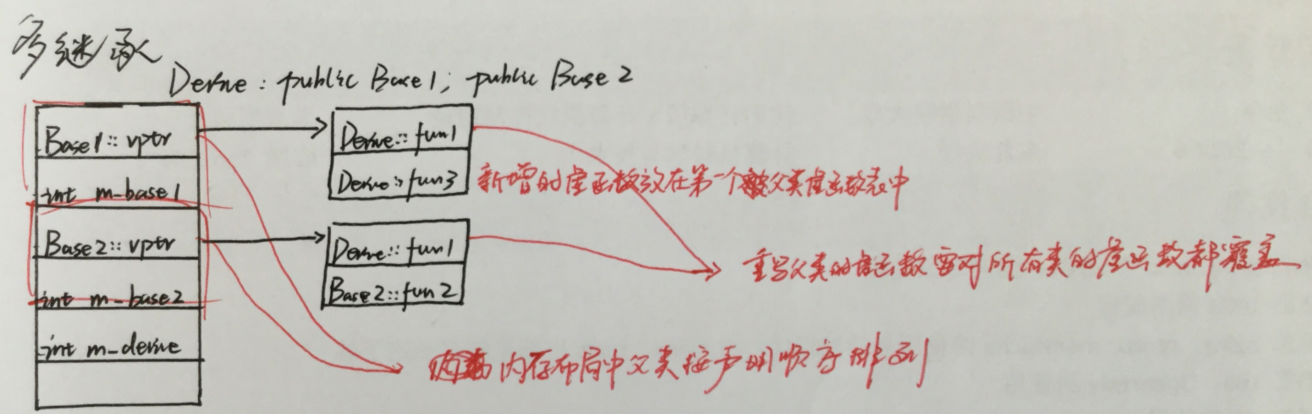 多继承
Derive : public Base1; public Base2
Base1::vptr
int m_base1
Base2::vptr
int m_base2
int m_derive
Derive::fun1
Derive::fun3
新增的虚函数放在第一个父类虚函数表中
Derive::fun1
Base2::fun2
重写父类的虚函数需对所有类的虚函数都覆盖
内存布局中父类按声明顺序排列